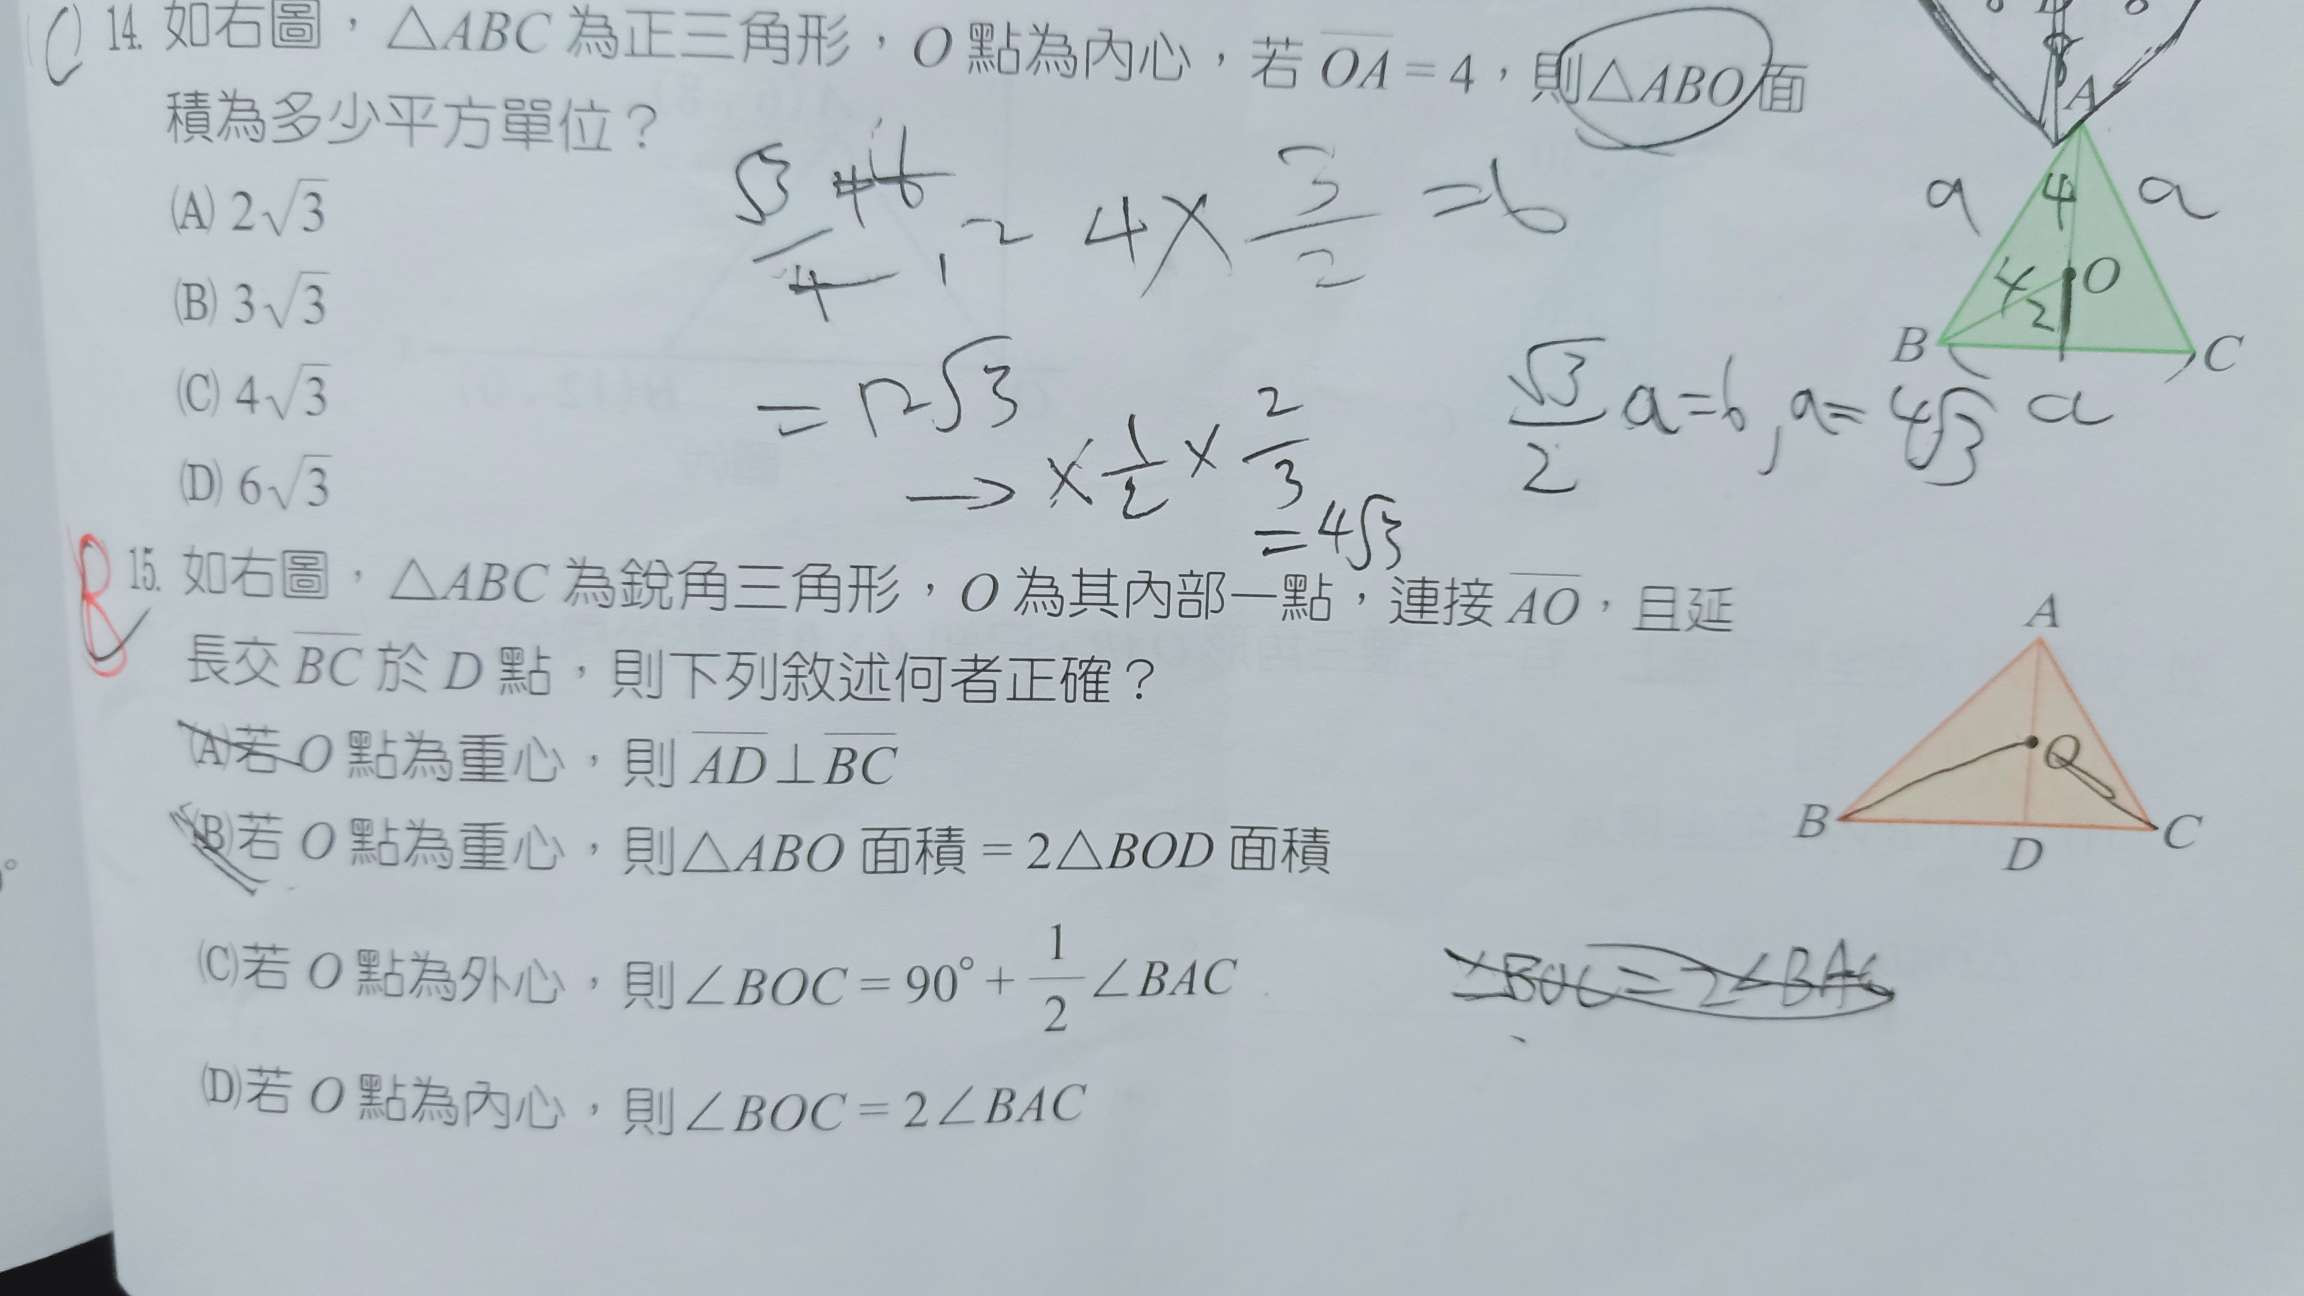 (C) 14. 如右圖，△ABC 為正三角形，O 點為內心，若 OA = 4，則△ABO 面
積為多少平方單位？
(A) 2√3
(B) 3√3
(C) 4√3
(D) 6√3
4 × 3/2 = 6
= 12√3
→ × 1/2 × 2/3
= 4√3
√3/2 a = 6, a = 4√3
A
a
4
a
O
4
2
B
C
a
B 15. 如右圖，△ABC 為銳角三角形，O 為其內部一點，連接 AO，且延
長交 BC 於 D 點，則下列敘述何者正確？
(A)若 O 點為重心，則 AD⊥BC
(B)若 O 點為重心，則△ABO 面積 = 2△BOD 面積
(C)若 O 點為外心，則∠BOC = 90° + 1/2 ∠BAC
(D)若 O 點為內心，則∠BOC = 2∠BAC
A
O
B
D
C
∠BOC = 2∠BAC